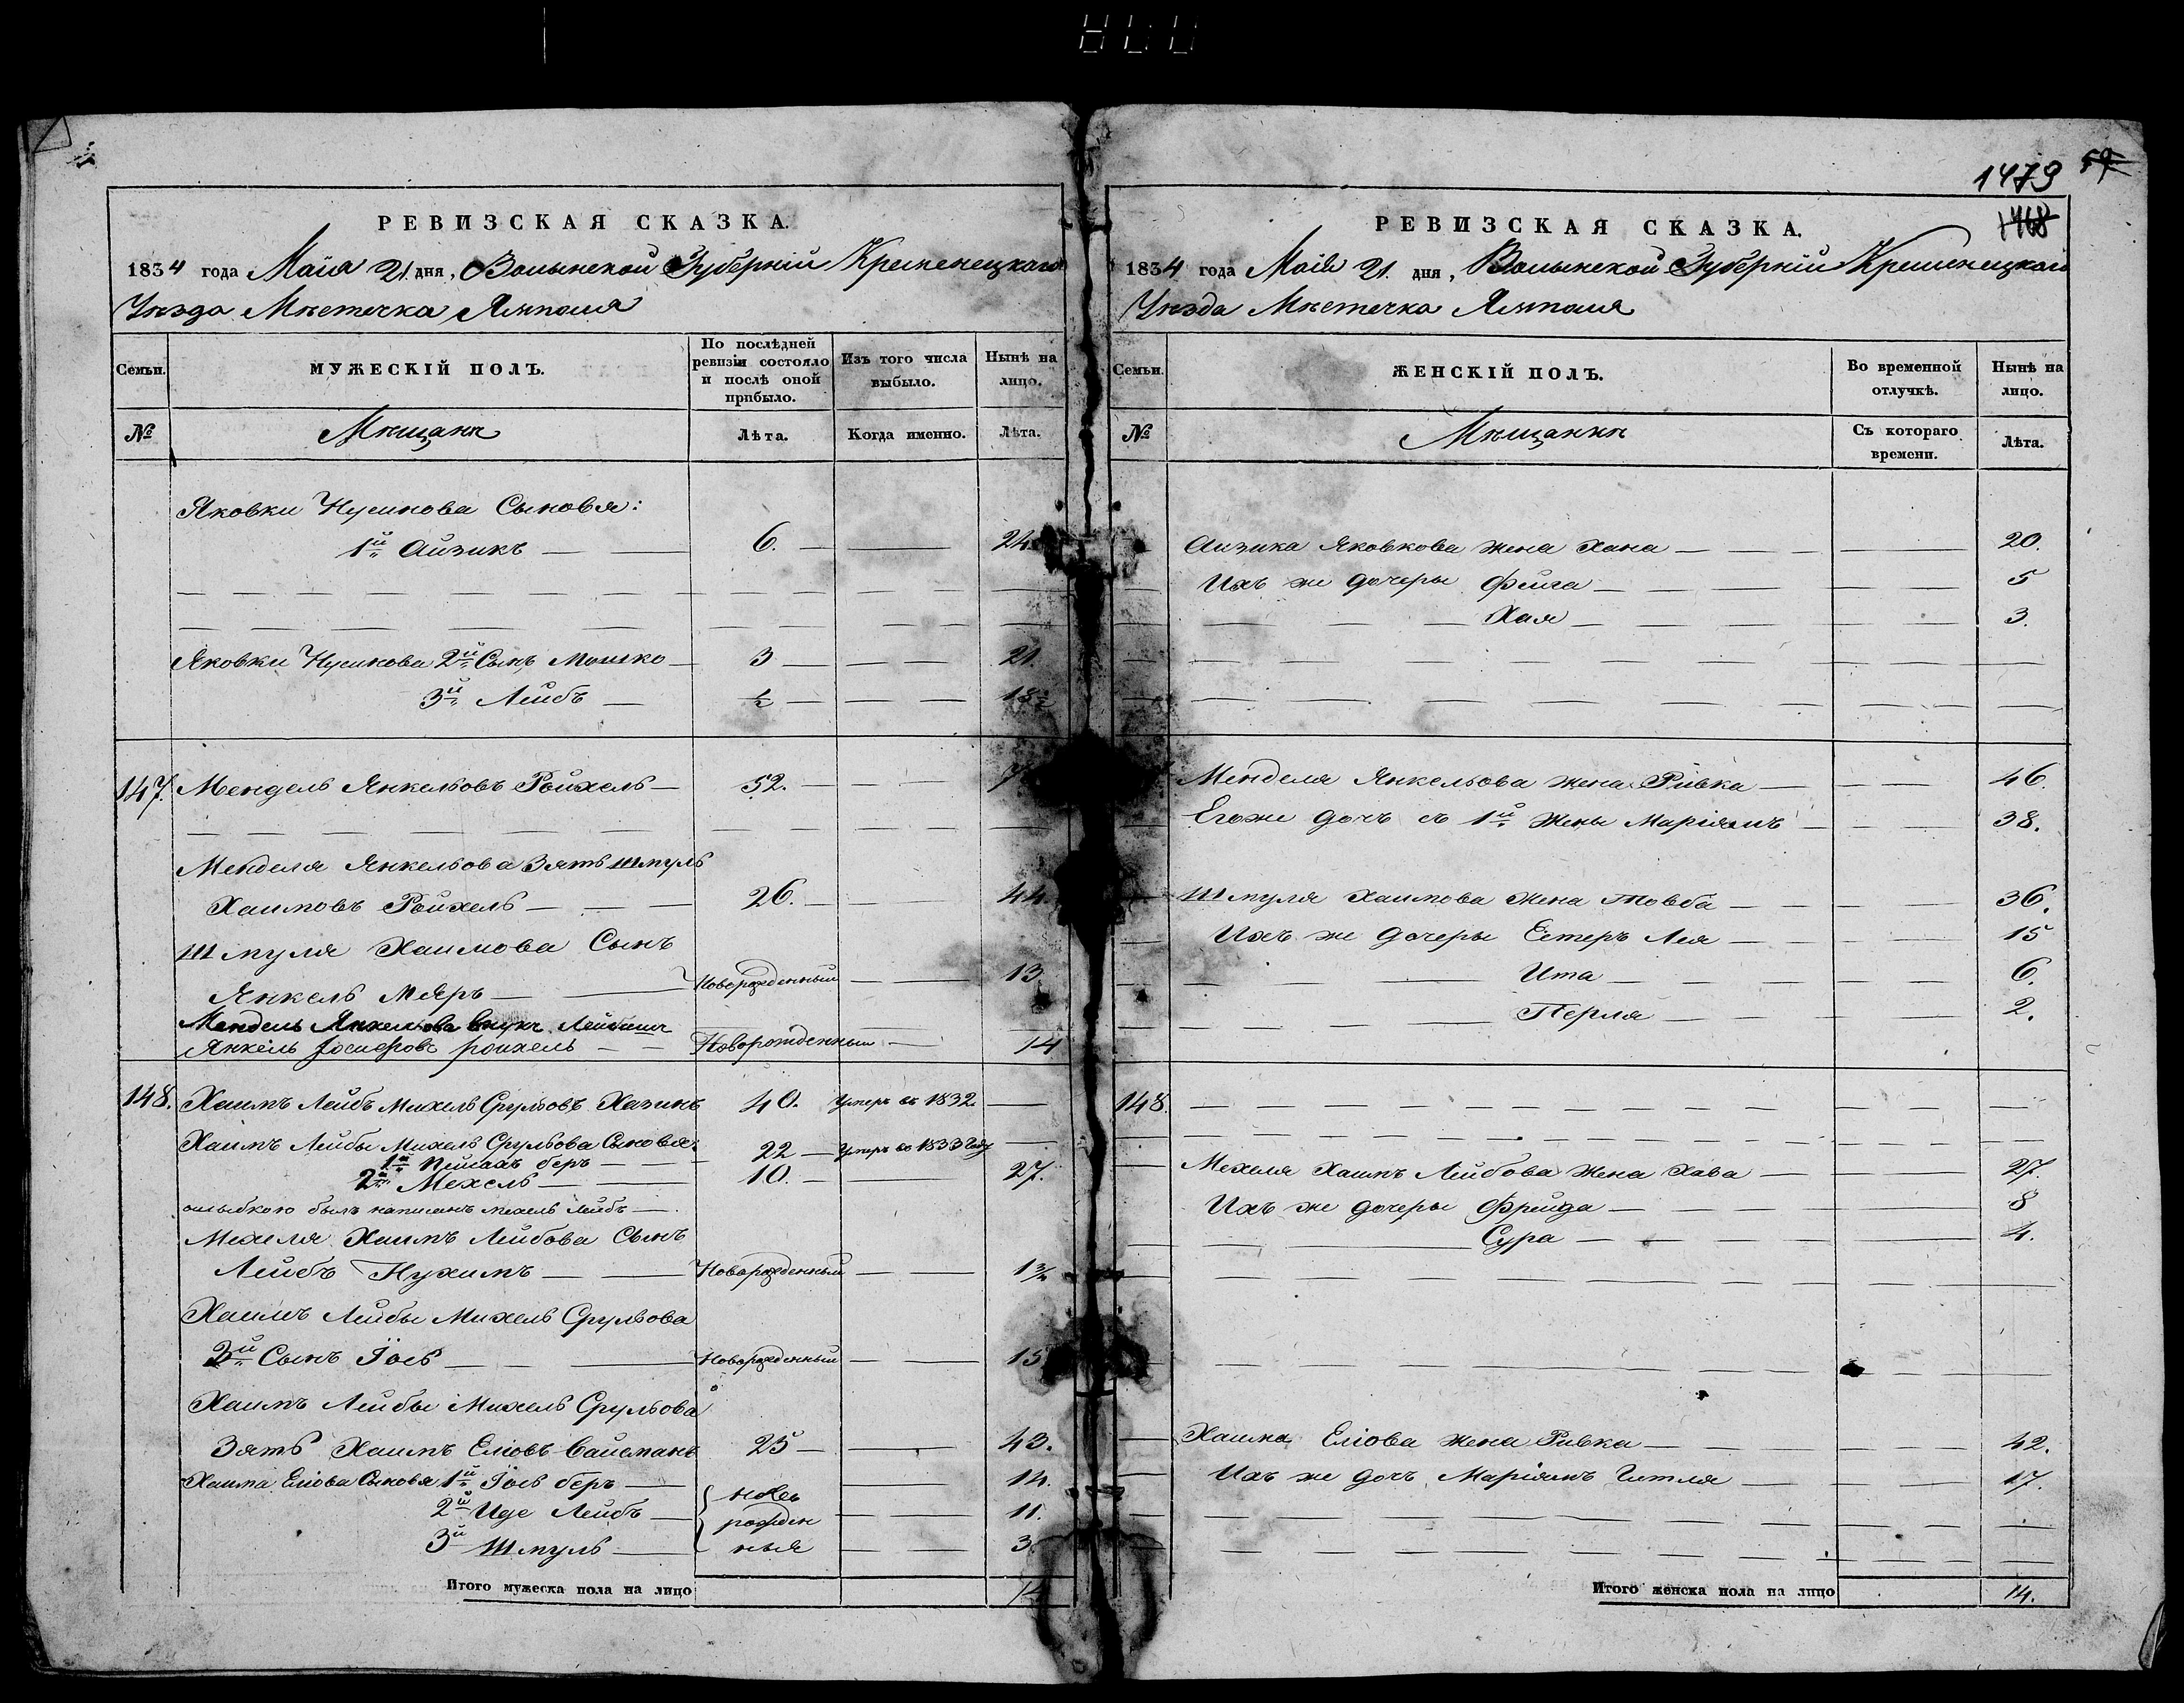 1479 59
1468
РЕВИЗСКАЯ СКАЗКА.
1834 года Маія 21 дня, Волынской Губерніи Кременецкаго
Уѣзда Мѣстечка Ямполя
Семьи. МУЖЕСКІЙ ПОЛЪ. По послѣдней ревизіи состояло и послѣ оной прибыло. Изъ того числа выбыло. Нынѣ на лицо.
№ Мѣщане Лѣта. Когда именно. Лѣта.
Яковки Нусинова Сыновья:
1й Айзикъ 6. 24
Яковки Нусинова 2й Сынъ Мошко 3 21
3й Лейбъ ½ 18½
147. Мендель Янкельовъ Ройхель 52.
Менделя Янкельова Зять Шмуль
Хаимовъ Ройхель 26. 44
Шмуля Хаимова Сынъ
Янкель Меяръ Новорожденный 13
Мендель Янкельова внукъ
Янкель Іосиеровъ роихель Новорожденный 14
148. Хаимъ Лейбъ Михель Срульовъ Хазинъ 40. Умеръ въ 1832.
Хаимъ Лейбы Михель Срульова Сыновья:
1й Пейсахъ беръ 22 Умеръ въ 1833 Году
2й Мехель 10. 27.
ошыбкою былъ написанъ Мехель Лейбъ
Мехеля Хаимъ Лейбова Сынъ
Лейбъ Нухимъ Новорожденный
Хаимъ Лейбы Михель Срульова
3й Сынъ Іось Новорожденный 15
Хаимъ Лейбы Михель Срульова
Зять Хаимъ Еліовъ Вайсманъ 25 43.
Хаима Еліова Сыновья 1й Іось беръ 14.
2й Иде Лейбъ 11.
3й Шмуль 3
новорожденныя
Итого мужеска пола на лицо 14
РЕВИЗСКАЯ СКАЗКА.
1834 года Маія 21. дня, Волынской Губерніи Кременецкаго
Уѣзда Мѣстечка Ямполя
Семьи. ЖЕНСКІЙ ПОЛЪ. Во временной отлучкѣ. Нынѣ на лицо.
№ Мѣщанки Съ котораго времени. Лѣта.
Айзика Яковкова жена Хана 20.
Ихъ же дочеры Фейга 5
Хая 3.
Менделя Янкельова жена Ривка 46
Егоже дочь съ 1й Жены Маріямъ 38.
Шмуля Хаимова Жена Товба 36.
Ихъ же дочеры Естеръ Лея 15
Ита 6.
Перля 2.
148.
Мехеля Хаимъ Лейбова Жена Хава 27.
Ихъ же дочеры Фрейда 8
Сура 4.
Хаима Еліова жена Ривка 42.
Ихъ же дочъ Маріямъ Гитля 17.
Итого женска пола на лицо 14.